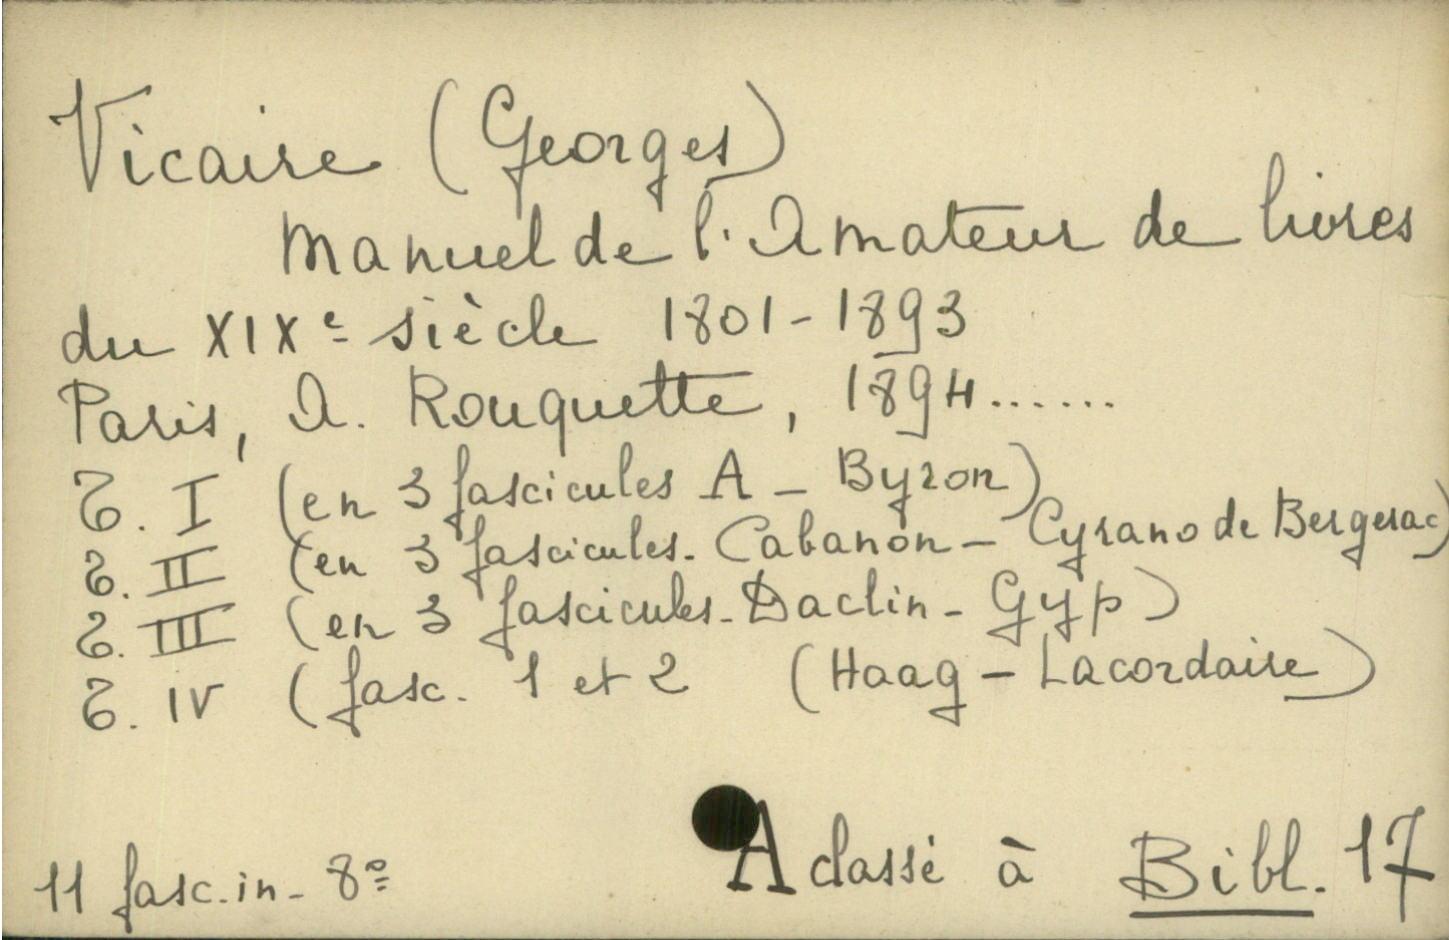 Vicaire (Georges)
Manuel de l'Amateur de livres
du XIXe siècle 1801-1893
Paris, A. Rouquette, 1894......
T. I (en 3 fascicules A - Byron)
T. II (en 3 fascicules. Cabanon - Cyrano de Bergerac)
T. III (en 3 fascicules. Daclin - Gyp)
T. IV (fasc. 1 et 2 (Haag - Lacordaire)
A classé à Bibl. 17
11 fasc. in-8º